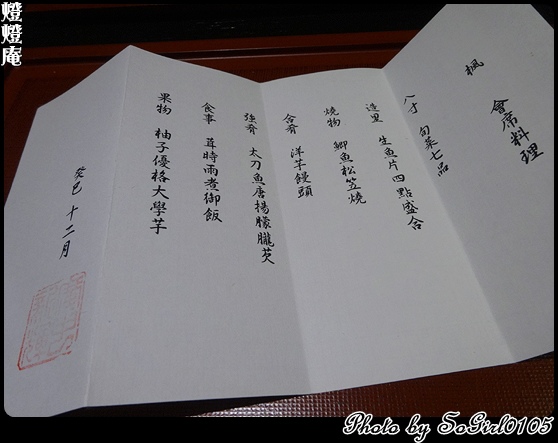 燈燈庵
楓 會席料理
八寸 旬菜七品
造里 生魚片四點盛合
燒物 鰤魚松笠燒
合肴 洋芋饅頭
強肴 太刀魚唐揚朦朧芡
食事 茸時雨煮御飯
果物 柚子優格大學芋
癸巳 十二月
Photo by SoGirl0105